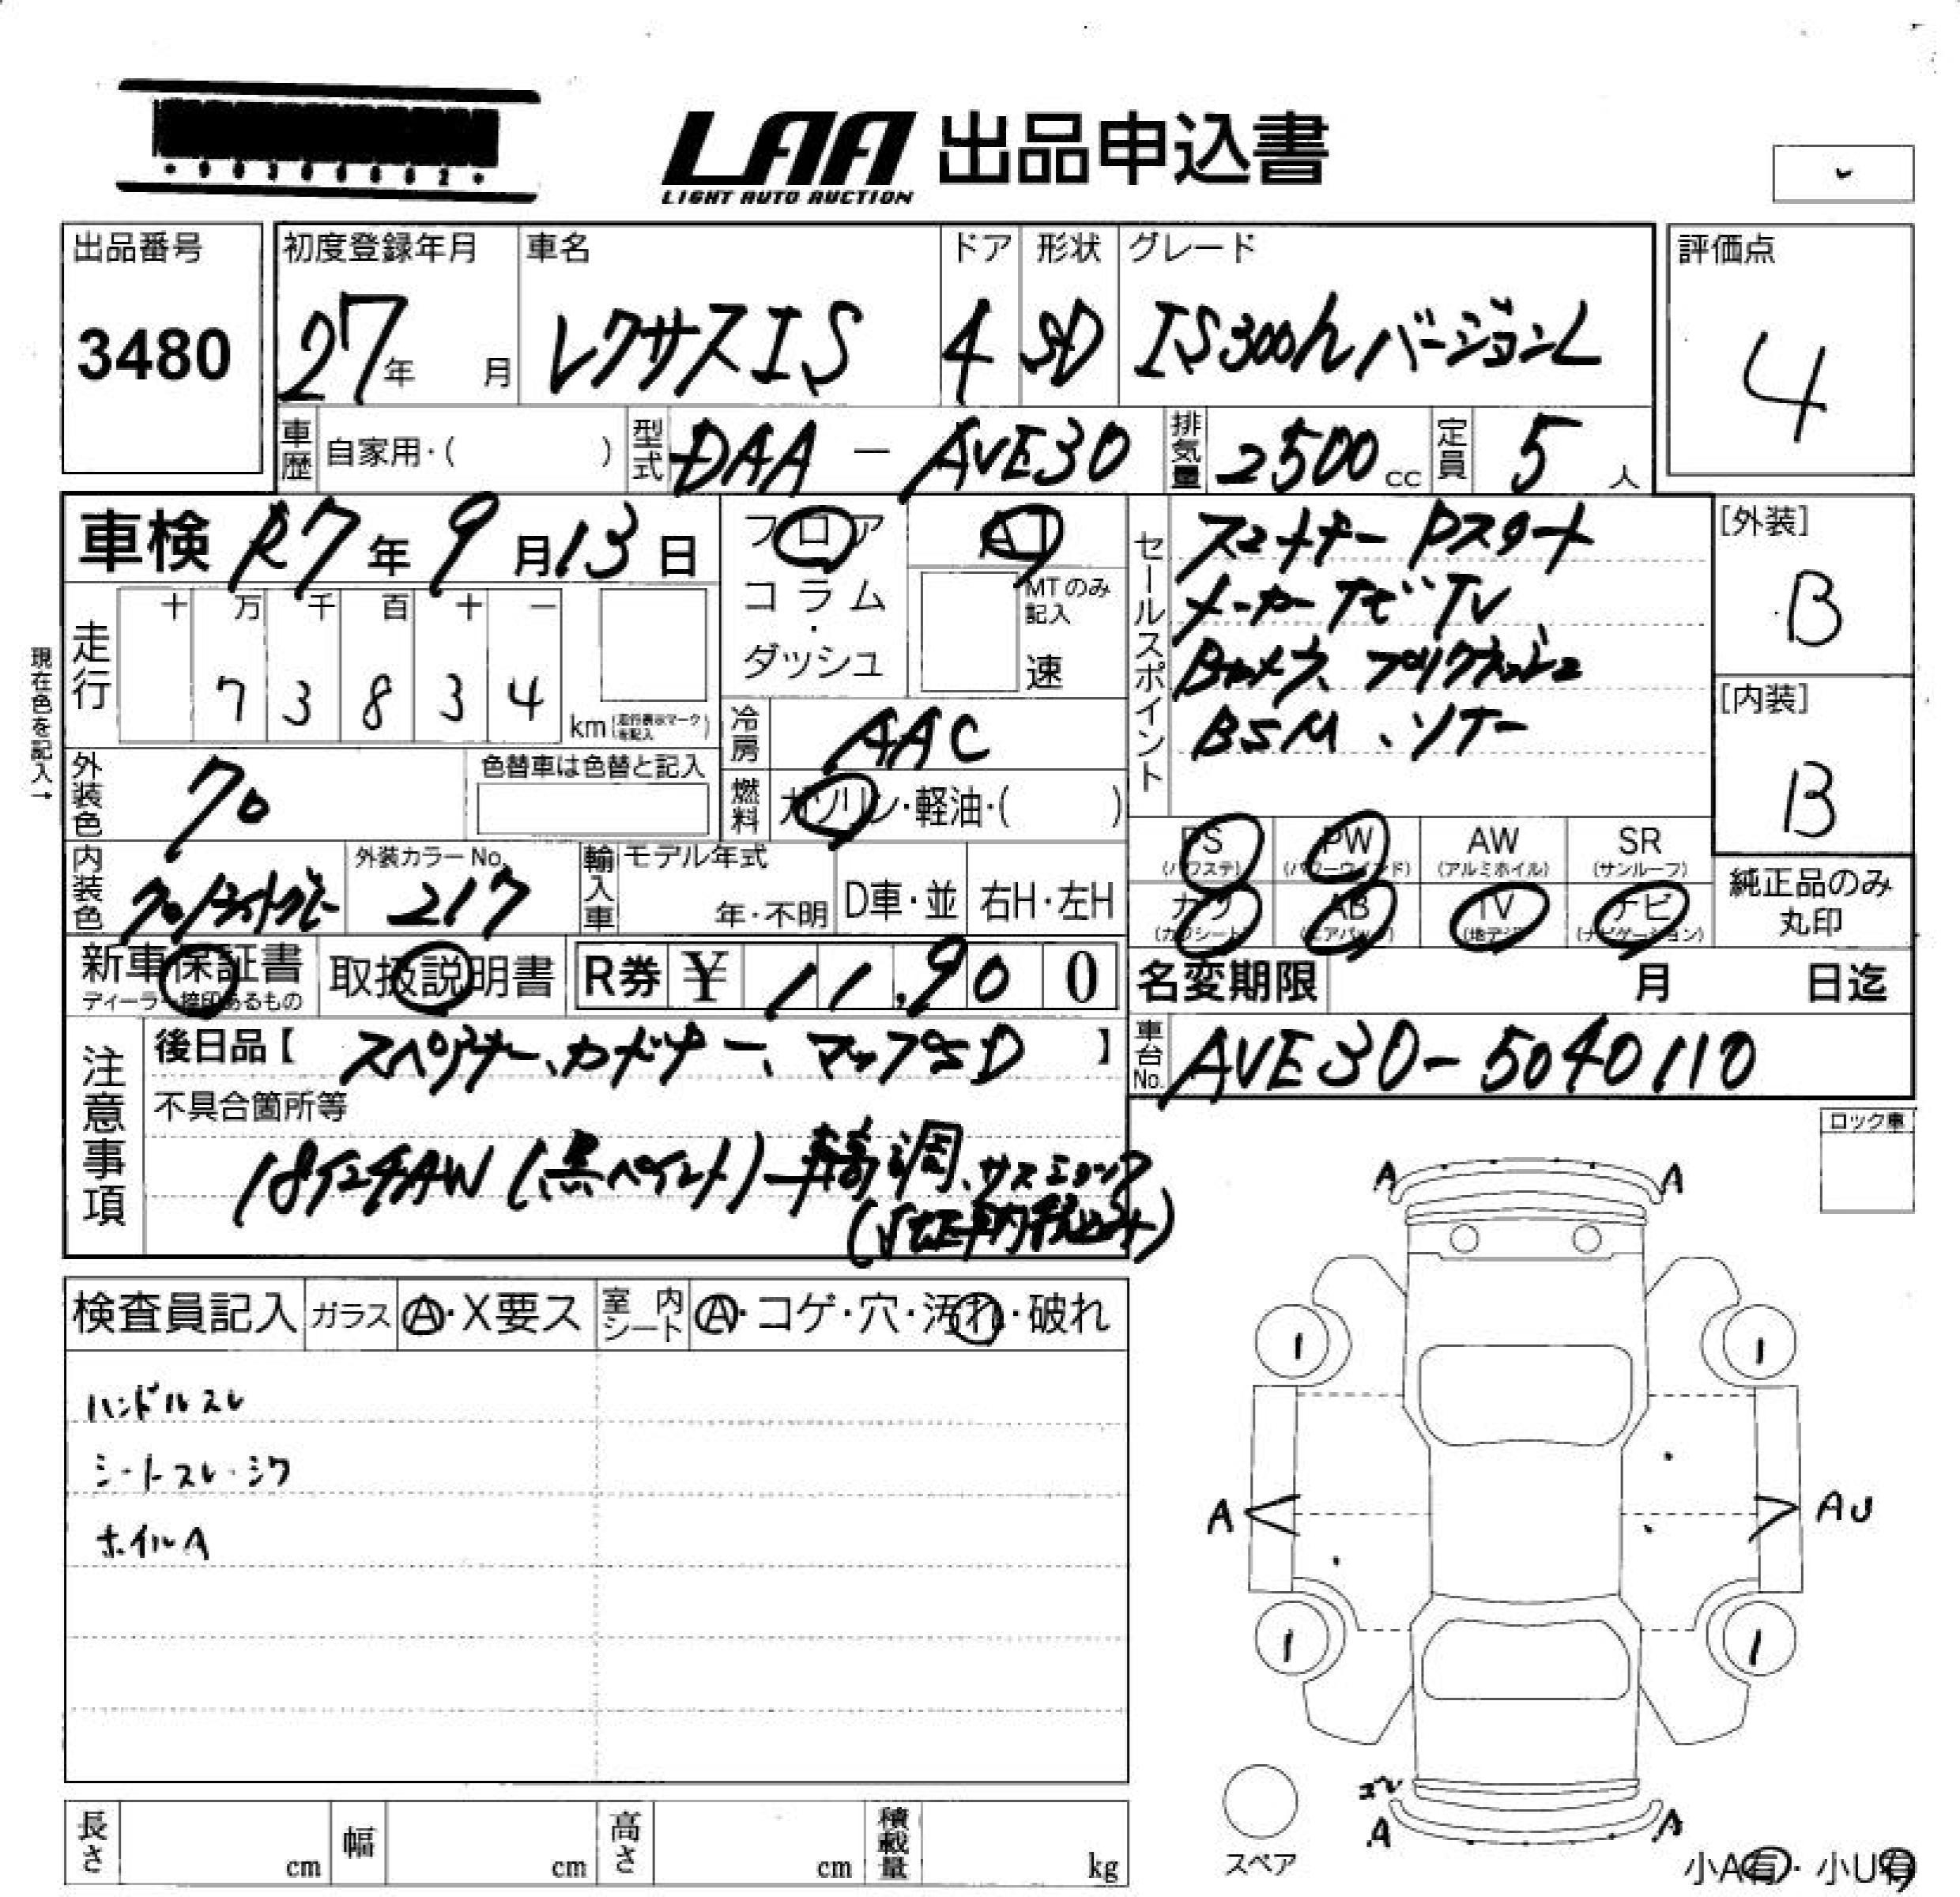 LAA 出品申込書
LIGHT AUTO AUCTION
出品番号
3480
初度登録年月
27年 月
車名
レクサスIS
ドア
4
形状
SD
グレード
IS300hバージョンL
評価点
4
車歴 自家用・( )
型式 DAA-AVE30
排気量 2500cc
定員 5人
車検 R7年9月13日
フロア
コラム
・
ダッシュ
AT
MTのみ記入
速
セールスポイント
スマートキー Pスタート
メーカーナビTV
Bカメラ、プリクラッシュ
BSM、ソナー
[外装]
B
[内装]
B
現在色を記入→
走行
十 万 千 百 十 一
7 3 8 3 4
km(走行表示マークを記入)
冷房 AAC
燃料 ガソリン・軽油・( )
外装色
クロ
色替車は色替と記入
内装色
クロ/
外装カラーNo.
217
輸入車
モデル年式
年・不明
D車・並
右H・左H
PS
(パワステ)
PW
(パワーウインド)
AW
(アルミホイル)
SR
(サンルーフ)
カワ
(カワシート)
AB
(エアバッグ)
TV
(地デジ)
ナビ
(ナビゲーション)
純正品のみ
丸印
新車保証書
ディーラー捺印あるもの
取扱説明書
R券 ¥ 11,900
名変期限 月 日迄
車台No. AVE30-5040110
注意事項
後日品【 スペアキー、カードキー、マップSD 】
不具合箇所等
18インチAW(黒ペイント)車高調、サスショック
ロック車
A A
検査員記入
ガラス Ⓐ・X要ス
室内シート Ⓐ・コゲ・穴・汚れ・破れ
ハンドルスレ
シートスレ・シワ
ホイルA
1 1
A AU
1 1
コスレ
A A
スペア
長さ cm
幅 cm
高さ cm
積載量 kg
小A有・小U有